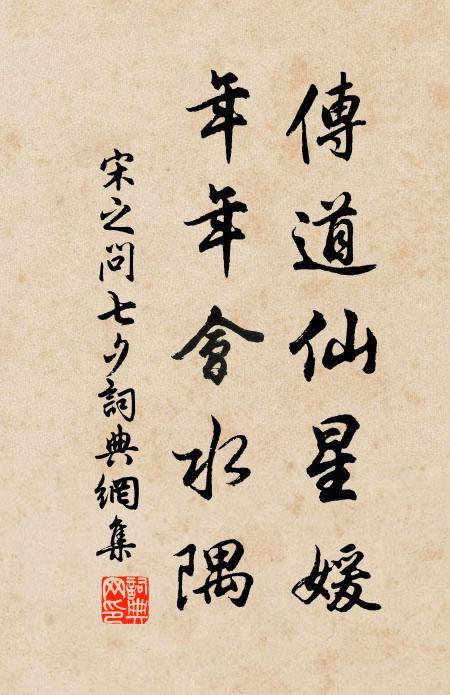 傳道仙星媛
年年會水隅
宋之問七夕詞典網集
詞典网印